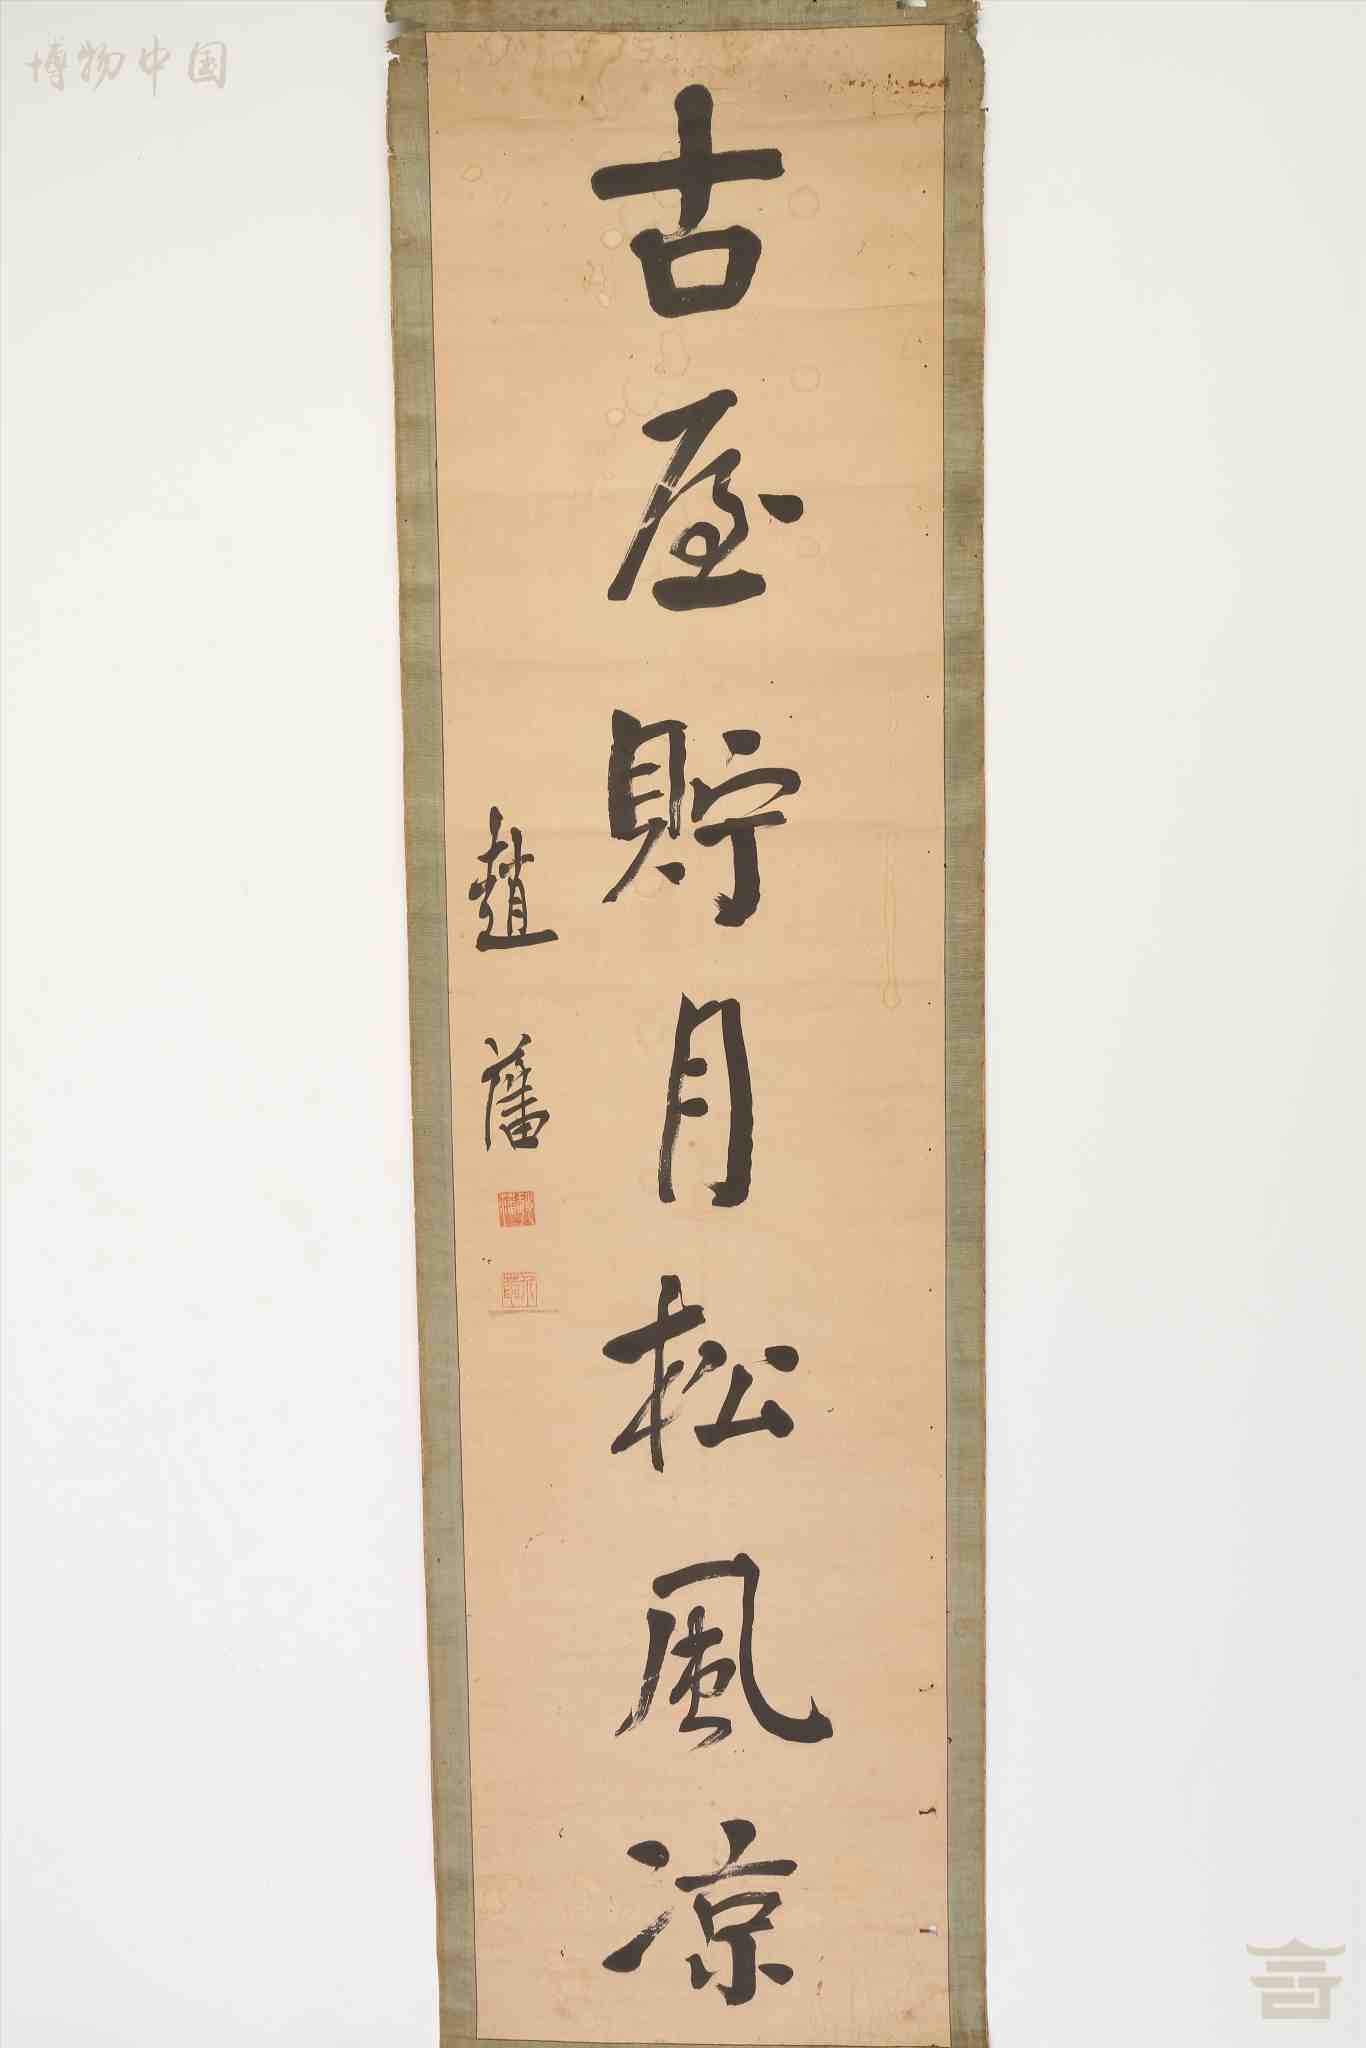 博物中国
古屋貯月松風凉
趙藩